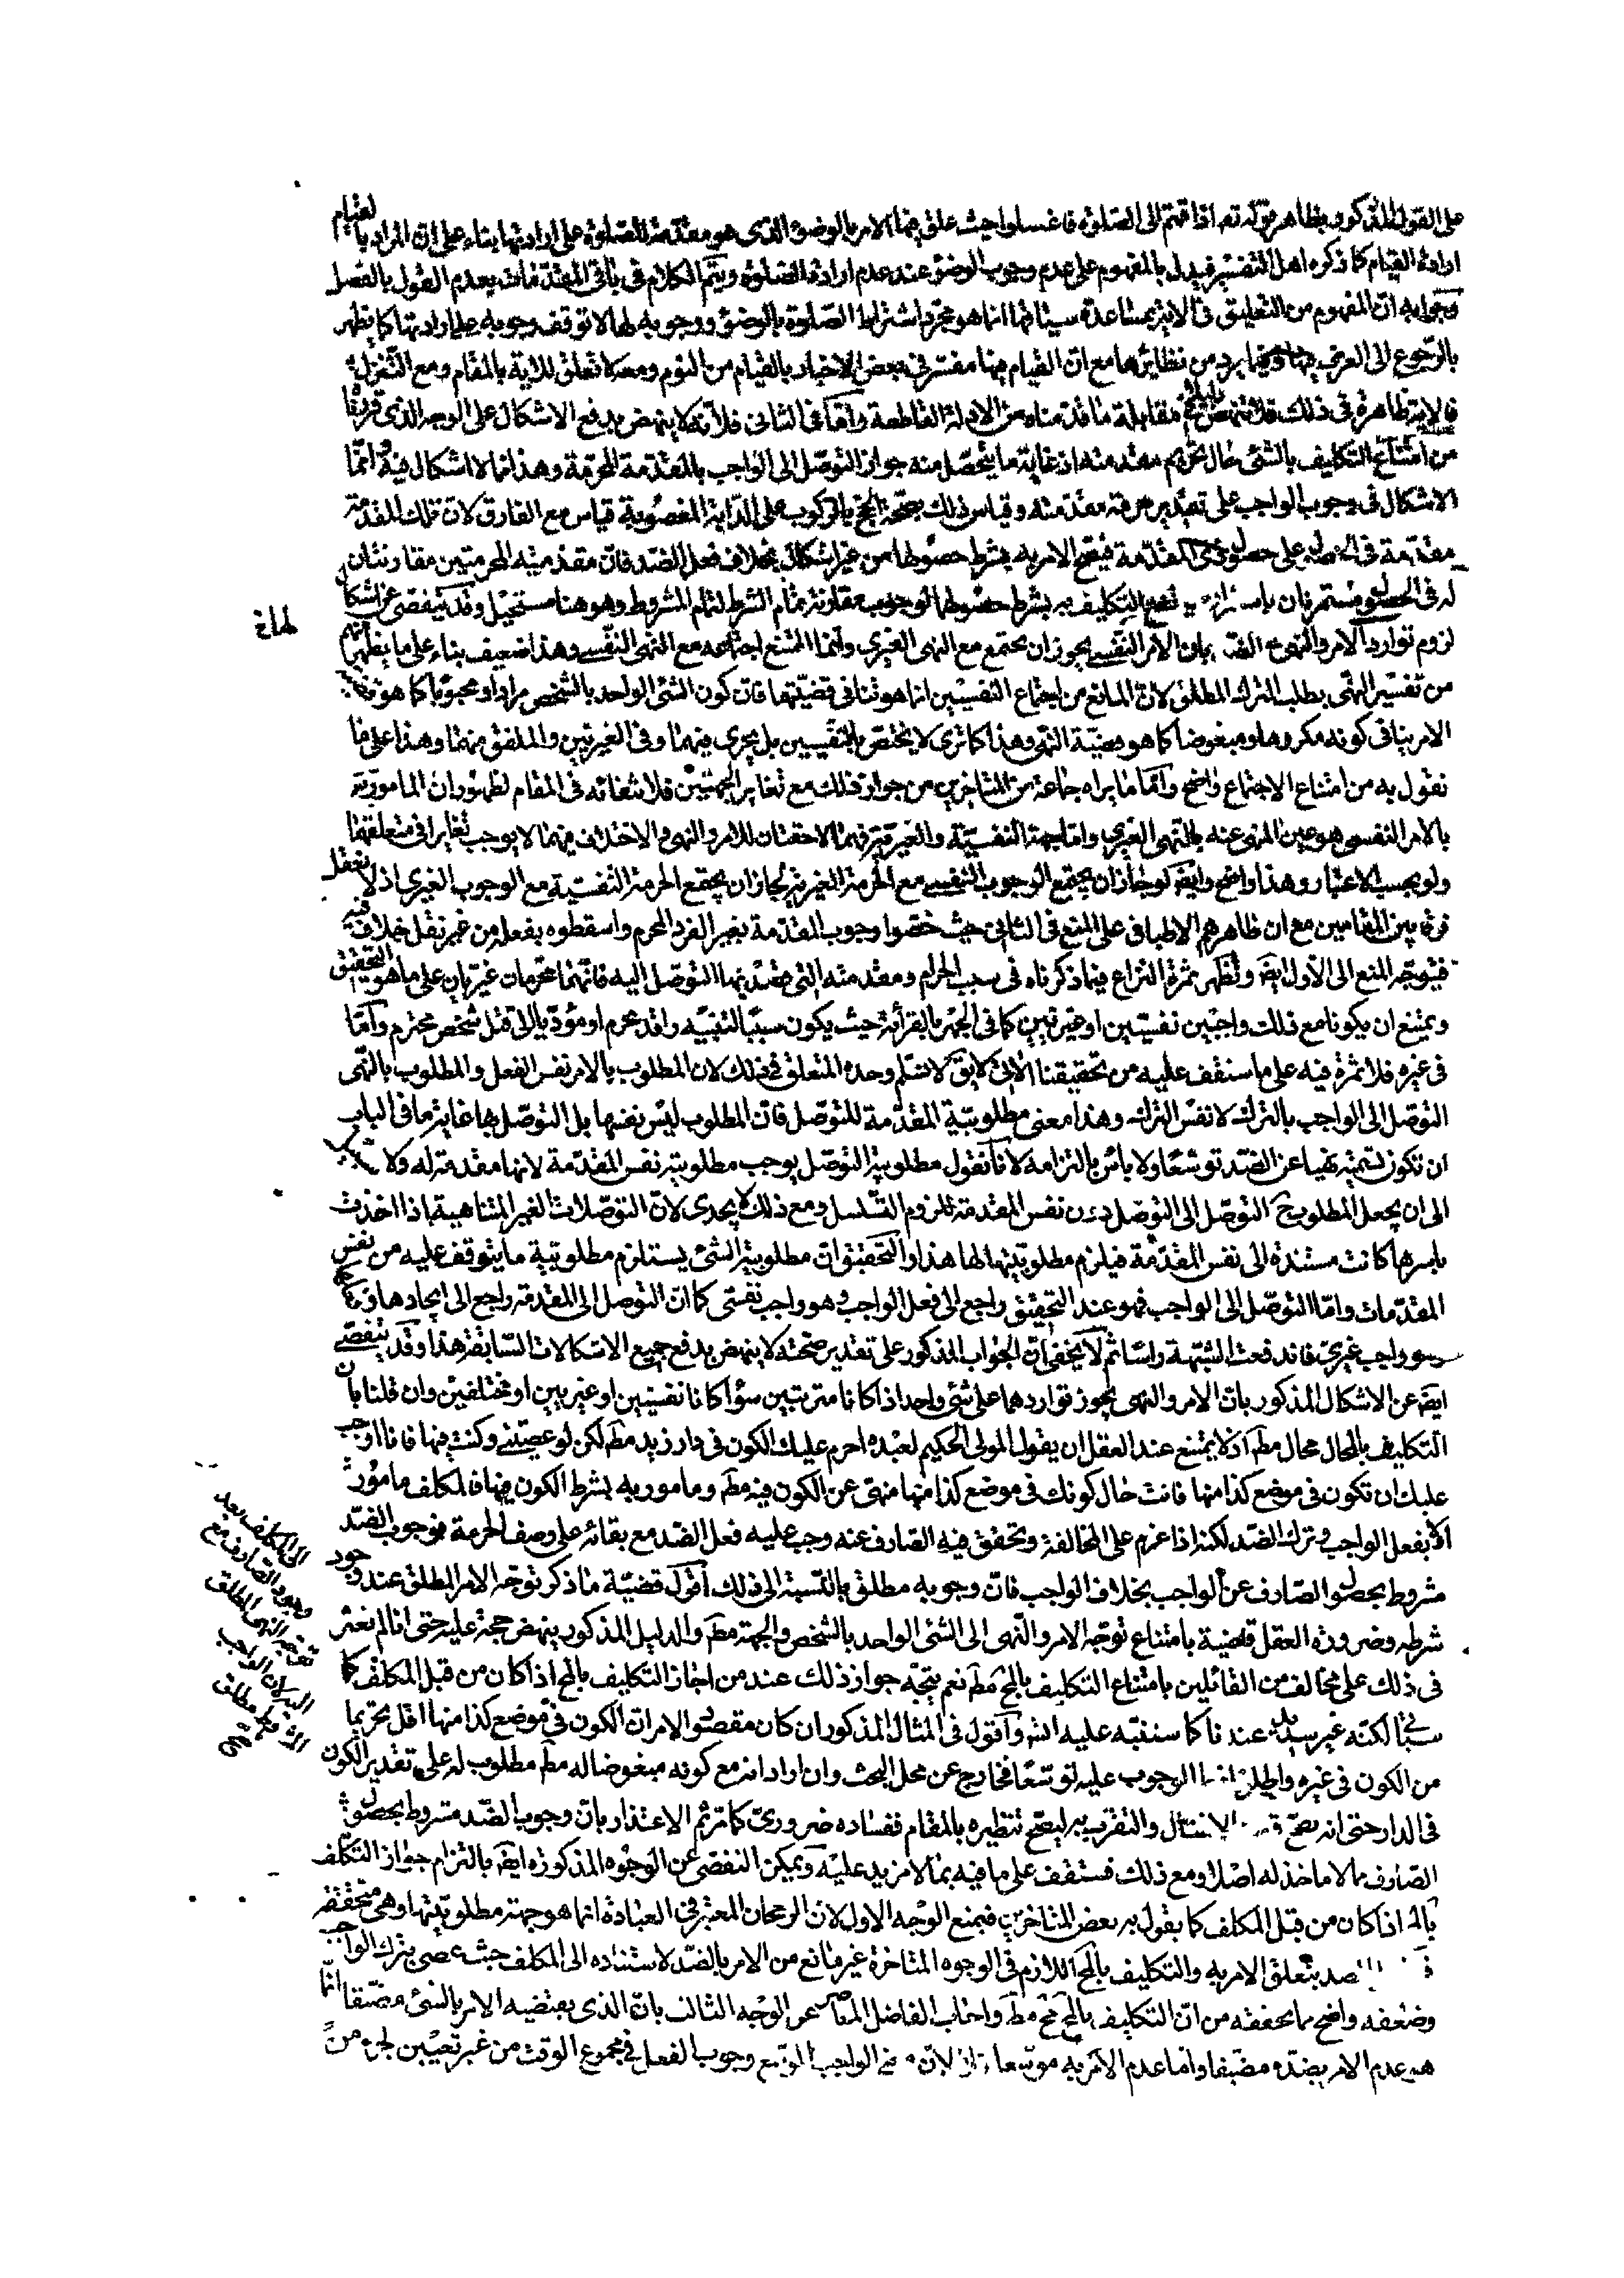 على القول المذكور بظاهر قوله تعم اذا قمتم الى الصلوة فاغسلوا حيث علق فيها الامر بالوضوء الذى هو مقدمة للصلوة على ارادتها بناء على ان المراد بالقيام
ارادة القيام كما ذكره اهل التفسير فيدل بالمفهوم على عدم وجوب الوضوء عند عدم ارادة الصلوة ويتم الكلام فى باقى المقدمات بعدم القول بالفصل
وجوابه ان المفهوم من التعليق فى الاية بمساعدة سياقها انما هو مجرد اشتراط الصلوة بالوضوء ووجوبه لها لا توقف وجوبه على ارادتها كما يظهر
بالرجوع الى العرف فيها وفيما يرد من نظايرها مع ان القيام فيها مفسر فى بعض الاخبار بالقيام من النوم ومعه لا تعلق للاية بالمقام ومع التنزل
فالاية ظاهرة فى ذلك فلا تنهض مقابلة ما قدمناه من الادلة القاطعة واما فى الثانى فلانه لا ينهض بدفع الاشكال على الوجه الذى قررنا
من امتناع التكليف بالشئ حال تحريم مقدمته اذ غاية ما يتحصل منه جواز التوصل الى الواجب بالمقدمة المحرمة وهذا مما لا اشكال فيه وانما
الاشكال فى وجوب الواجب على تقدير حرمة مقدمته وقياس ذلك بصحة الحج بالركوب على الدابة المغصوبة قياس مع الفارق لان تلك المقدمة
متقدمة فى الحصول على حصول ذى المقدمة فيصح الامر به بشرط حصولها من غير اشكال بخلاف فعل الضد فان مقدمتيه المحرمتين مقارنتان
له فى الحصول مستمرتان التكليف به بشرط حصولهما لوجوب مقارنة تمام الشرط لتمام المشروط وهو هنا مستحيل وقد يتفصى عن اشكال
لزوم توارد الامر والنهى بان الامر النفسى يجوز ان يجتمع مع النهى الغيرى وانما الممتنع اجتماعه مع النهى النفسى وهذا ضعيف بناء على ما يظهر
من تفسير النهى بطلب الترك المطلق لان المانع من اجتماع النفسيين انما هو تنافى قضيتهما فان كون الشئ الواحد بالشخص مرادا ومحبوبا كما هو
الامر ينافى كونه مكروها ومبغوضا كما هو قضية النهى وهذا كما ترى لا يختص بالنفسيين بل يجرى فيهما وفى الغيريين والملفق منهما وهذا على ما
نقول به من امتناع الاجتماع واضح واما ما يراه جماعة من المتاخرين من جواز ذلك مع تغاير الجهتين فلانتفائه فى المقام لظهور ان المامور به
بالامر النفسى هو عين المنهى عنه بالنهى الغيرى واما جهة النفسية والغيرية فهما لاحقتان للامر والنهى والاختلاف فيهما لا يوجب تغايرا فى متعلقهما
ولو بحسب الاعتبار وهذا واضح وايضا لو جاز ان يجتمع الوجوب النفسى مع الحرمة الغيرية لجاز ان يجتمع الحرمة النفسية مع الوجوب الغيرى اذ لا نعقل
فرقا بين المقامين مع ان ظاهرهم الاطباق على المنع فى الثانى حيث خصوا وجوب المقدمة بغير الفرد المحرم واسقطوه بفعله من غير نقل خلاف فيه
فيتوجه المنع الى الاول ايضا وتظهر ثمرة النزاع فيما ذكرناه فى سبب الحرام ومقدمته التى قصد بها التوصل اليه فانهما محرمان غيريان على ما هو التحقيق
ويمتنع ان يكونا مع ذلك واجبين نفسيين او غيريين كما فى الجهر بالقرائة حيث يكون سببا لتنبيه راقد محرم او مؤديا الى قتل شخص محترم واما
فى غيره فلا ثمرة فيه على ما سنقف عليه من تحقيقنا الاتى لا يق لا نسلم وحدة المتعلق فى ذلك لان المطلوب بالامر نفس الفعل والمطلوب بالنهى
التوصل الى الواجب بالترك لا نفس الترك وهذا معنى مطلوبية المقدمة للتوصل فان المطلوب ليس نفسها بل التوصل بها غاية ما فى الباب
ان تكون تسميته نهيا عن الضد توسعا ولا باس بالتزامه لانا نقول مطلوبية التوصل يوجب مطلوبية نفس المقدمة لانها مقدمة له ولا
الى ان يجعل المطلوب ح التوصل الى التوصل دون نفس المقدمة للزوم التسلسل ومع ذلك لا يجدى لان التوصلات الغير المتناهية اذا اخذت
باسرها كانت مستندة الى نفس المقدمة فيلزم مطلوبيتها لها هذا والتحقيق ان مطلوبية الشئ يستلزم مطلوبية ما يتوقف عليه من نفس
المقدمات واما التوصل الى الواجب فهو عند التحقيق راجع الى فعل الواجب وهو واجب نفسى كما ان التوصل الى المقدمة راجع الى ايجادها
وهو واجب غيرى فاندفعت الشبهة راسا ثم لا يخفى ان الجواب المذكور على تقدير صحته لا ينهض بدفع جميع الاشكالات السابقة هذا وقد يتفصى
ايضا عن الاشكال المذكور بان الامر والنهى يجوز تواردهما على شئ واحد اذا كانا مترتبين سواء كانا نفسيين او غيريين او مختلفين وان قلنا بان
التكليف بالمحال محال مطم اذ لا يمتنع عند العقل ان يقول المولى الحكيم لعبده احرم عليك الكون فى دار زيد مطم لكن لو عصيتنى وكنت فيها فانا اوجب
عليك ان تكون فى موضع كذا منها فانت حال كونك فى موضع كذا منها منهى عن الكون فيه مطم ومامور به بشرط الكون فيها فالمكلف مامور
اولا بفعل الواجب وترك الضد لكنه اذا عزم على المخالفة وتحقق فيه الصارف عنه وجب عليه فعل الضد مع بقائه على وصف الحرمة فوجوب الضد
مشروط بحصول الصارف عن الواجب بخلاف الواجب فان وجوبه مطلق بالنسبة الى ذلك اقول قضية ما ذكر توجه الامر المطلق عند وجود
شرطه وضرورة العقل قاضية بامتناع توجه الامر والنهى الى الشئ الواحد بالشخص والجهة مطم والدليل المذكور ينهض حجة عليه حتى انا لم نعثر
فى ذلك على مخالف من القائلين بامتناع التكليف بالمح مطم نعم يتجه جواز ذلك عند من اجاز التكليف بالمح اذا كان من قبل المكلف كما
لكنه غير سديد عندنا كما سننبه عليه انش واقول فى المثال المذكور ان كان مقصود الامر ان الكون فى موضع كذا منها اقل تحريما
من الكون فى غيره واطلق الوجوب عليه توسعا فخارج عن محل البحث وان اراد انه مع كونه مبغوضا له مطم مطلوب له على تقدير الكون
فى الدار حتى انه يصح الامتثال والتقرب به ليصح تنظيره بالمقام ففساده ضرورى كما مر ثم الاعتذار بان وجوب الضد مشروط بحصول
الصارف مما لا ماخذ له اصلا ومع ذلك فستقف على ما فيه بما لا مزيد عليه ويمكن التفصى عن الوجوه المذكورة ايضا بالتزام جواز التكليف
بالمح اذا كان من قبل المكلف كما يقول به بعض المتاخرين فيمنع الوجه الاول لان الرجحان المعتبر فى العبادة انما هو جهة مطلوبيتها وهى متحققة
بتعلق الامر به والتكليف بالمح اللازم فى الوجوه المتاخرة غير مانع من الامر بالضد لاستناده الى المكلف حيث عصى بترك الواجب
وضعفه واضح مما يحققه من ان التكليف بالمح مح مطم واجاب الفاضل المعاصر عن الوجه الثالث بان الذى يقتضيه الامر بالشئ مضيقا انما
هو عدم الامر بضده مضيقا واما عدم الامر به موسعا فلا لان الواجب الموسع وجوب الفعل فى مجموع الوقت من غير تعيين لجزء من
الى المكلف بعد
وجود الصارف مع
النهى المطلق